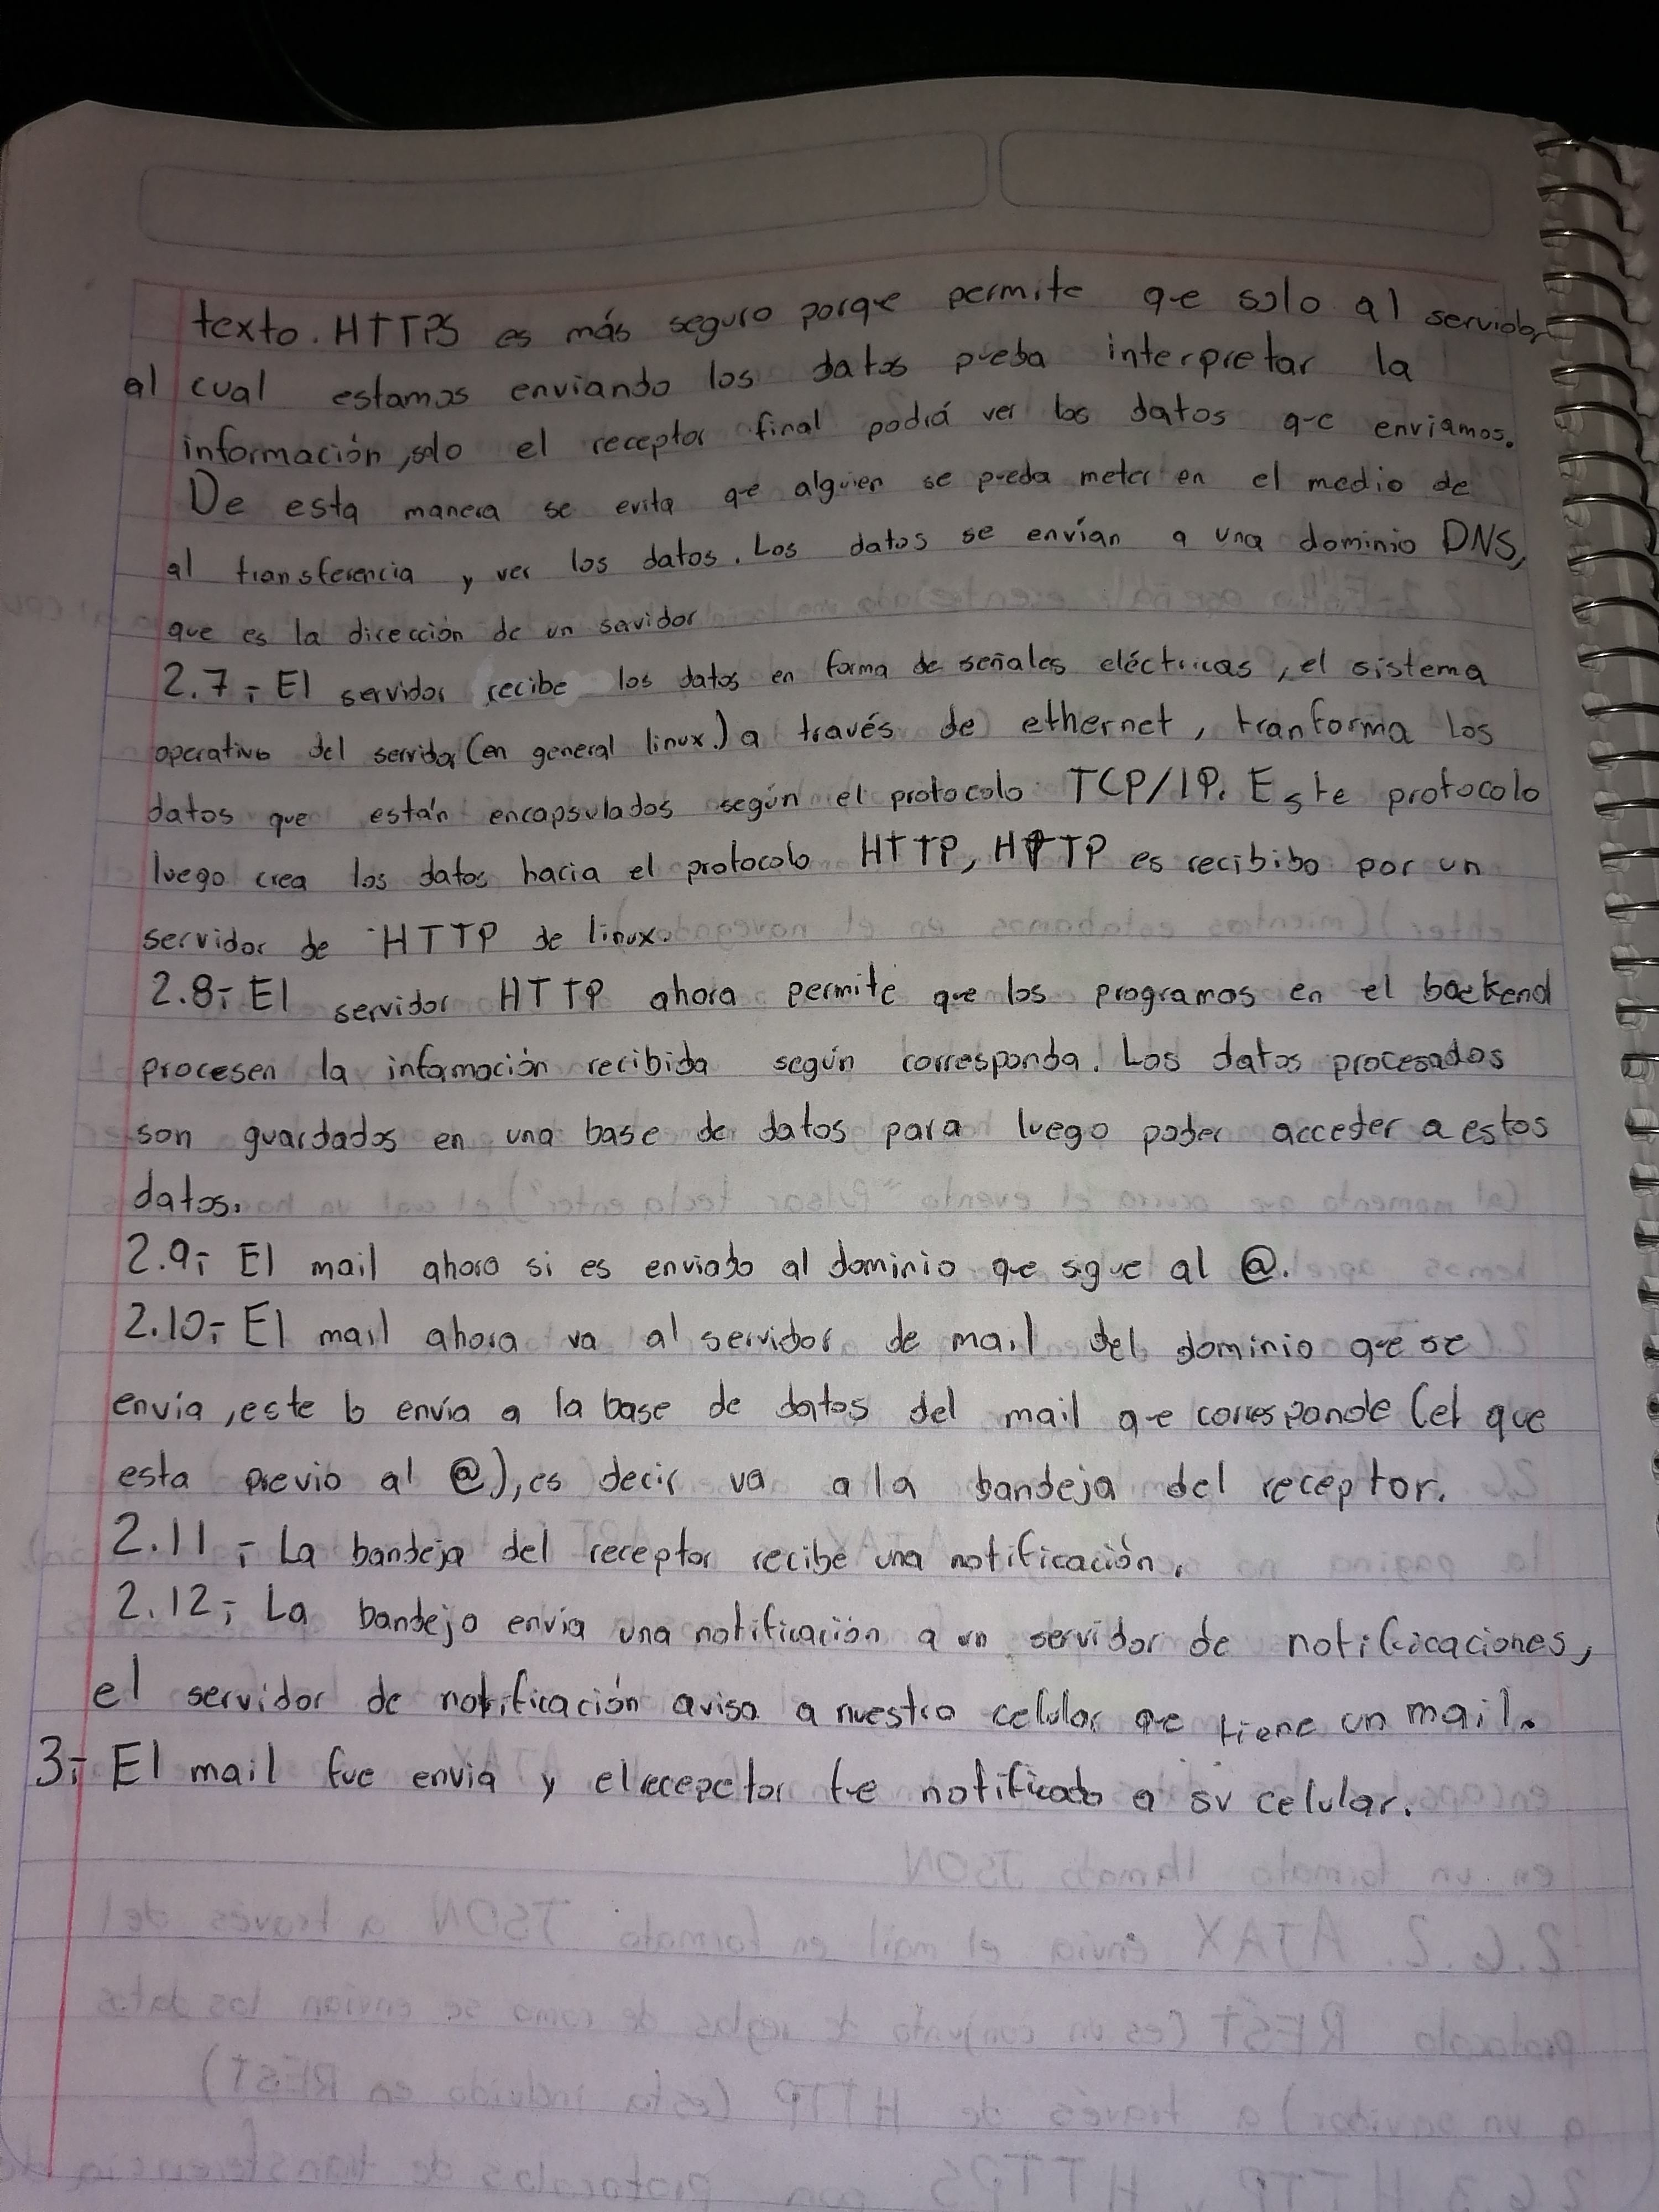 texto. HTTPS es más seguro porqe permite qe solo al servidor
al cual estamos enviando los datos pueda interpretar la
información, solo el receptor final podrá ver los datos qe enviamos.
De esta manera se evita qe alguien se pueda meter en el medio de
al transferencia y ver los datos. Los datos se envían a una dominio DNS,
que es la dirección de un savidor
2.7.- El servidor recibe los datos en forma de señales eléctricas, el sistema
operativo del servidor (en general linux.) a través de ethernet, tranforma los
datos que están encapsulados según el protocolo TCP/IP. Este protocolo
luego crea los datos hacia el protocolo HTTP, HTTP es recibibo por un
servidor de HTTP de linux.
2.8.- El servidor HTTP ahora permite que los programas en el backend
procesen la infamación recibida según corresponda. Los datos procesados
son guardados en una base de datos para luego poder acceder a estos
datos.
2.9.- El mail ahora si es enviado al dominio qe sigue al @.
2.10.- El mail ahora va al servidor de mail del dominio qe se
envia, este lo envía a la base de datos del mail qe corresponde (el que
esta previo al @), es decir va a la bandeja del receptor.
2.11.- La bandeja del receptor recibe una notificación.
2.12.- La bandeja envia una notificación a un servidor de notificicaciones,
el servidor de notificación avisa a nuestro celular qe tiene un mail.
3.- El mail fue envia y el recepctor fue notificado a su celular.